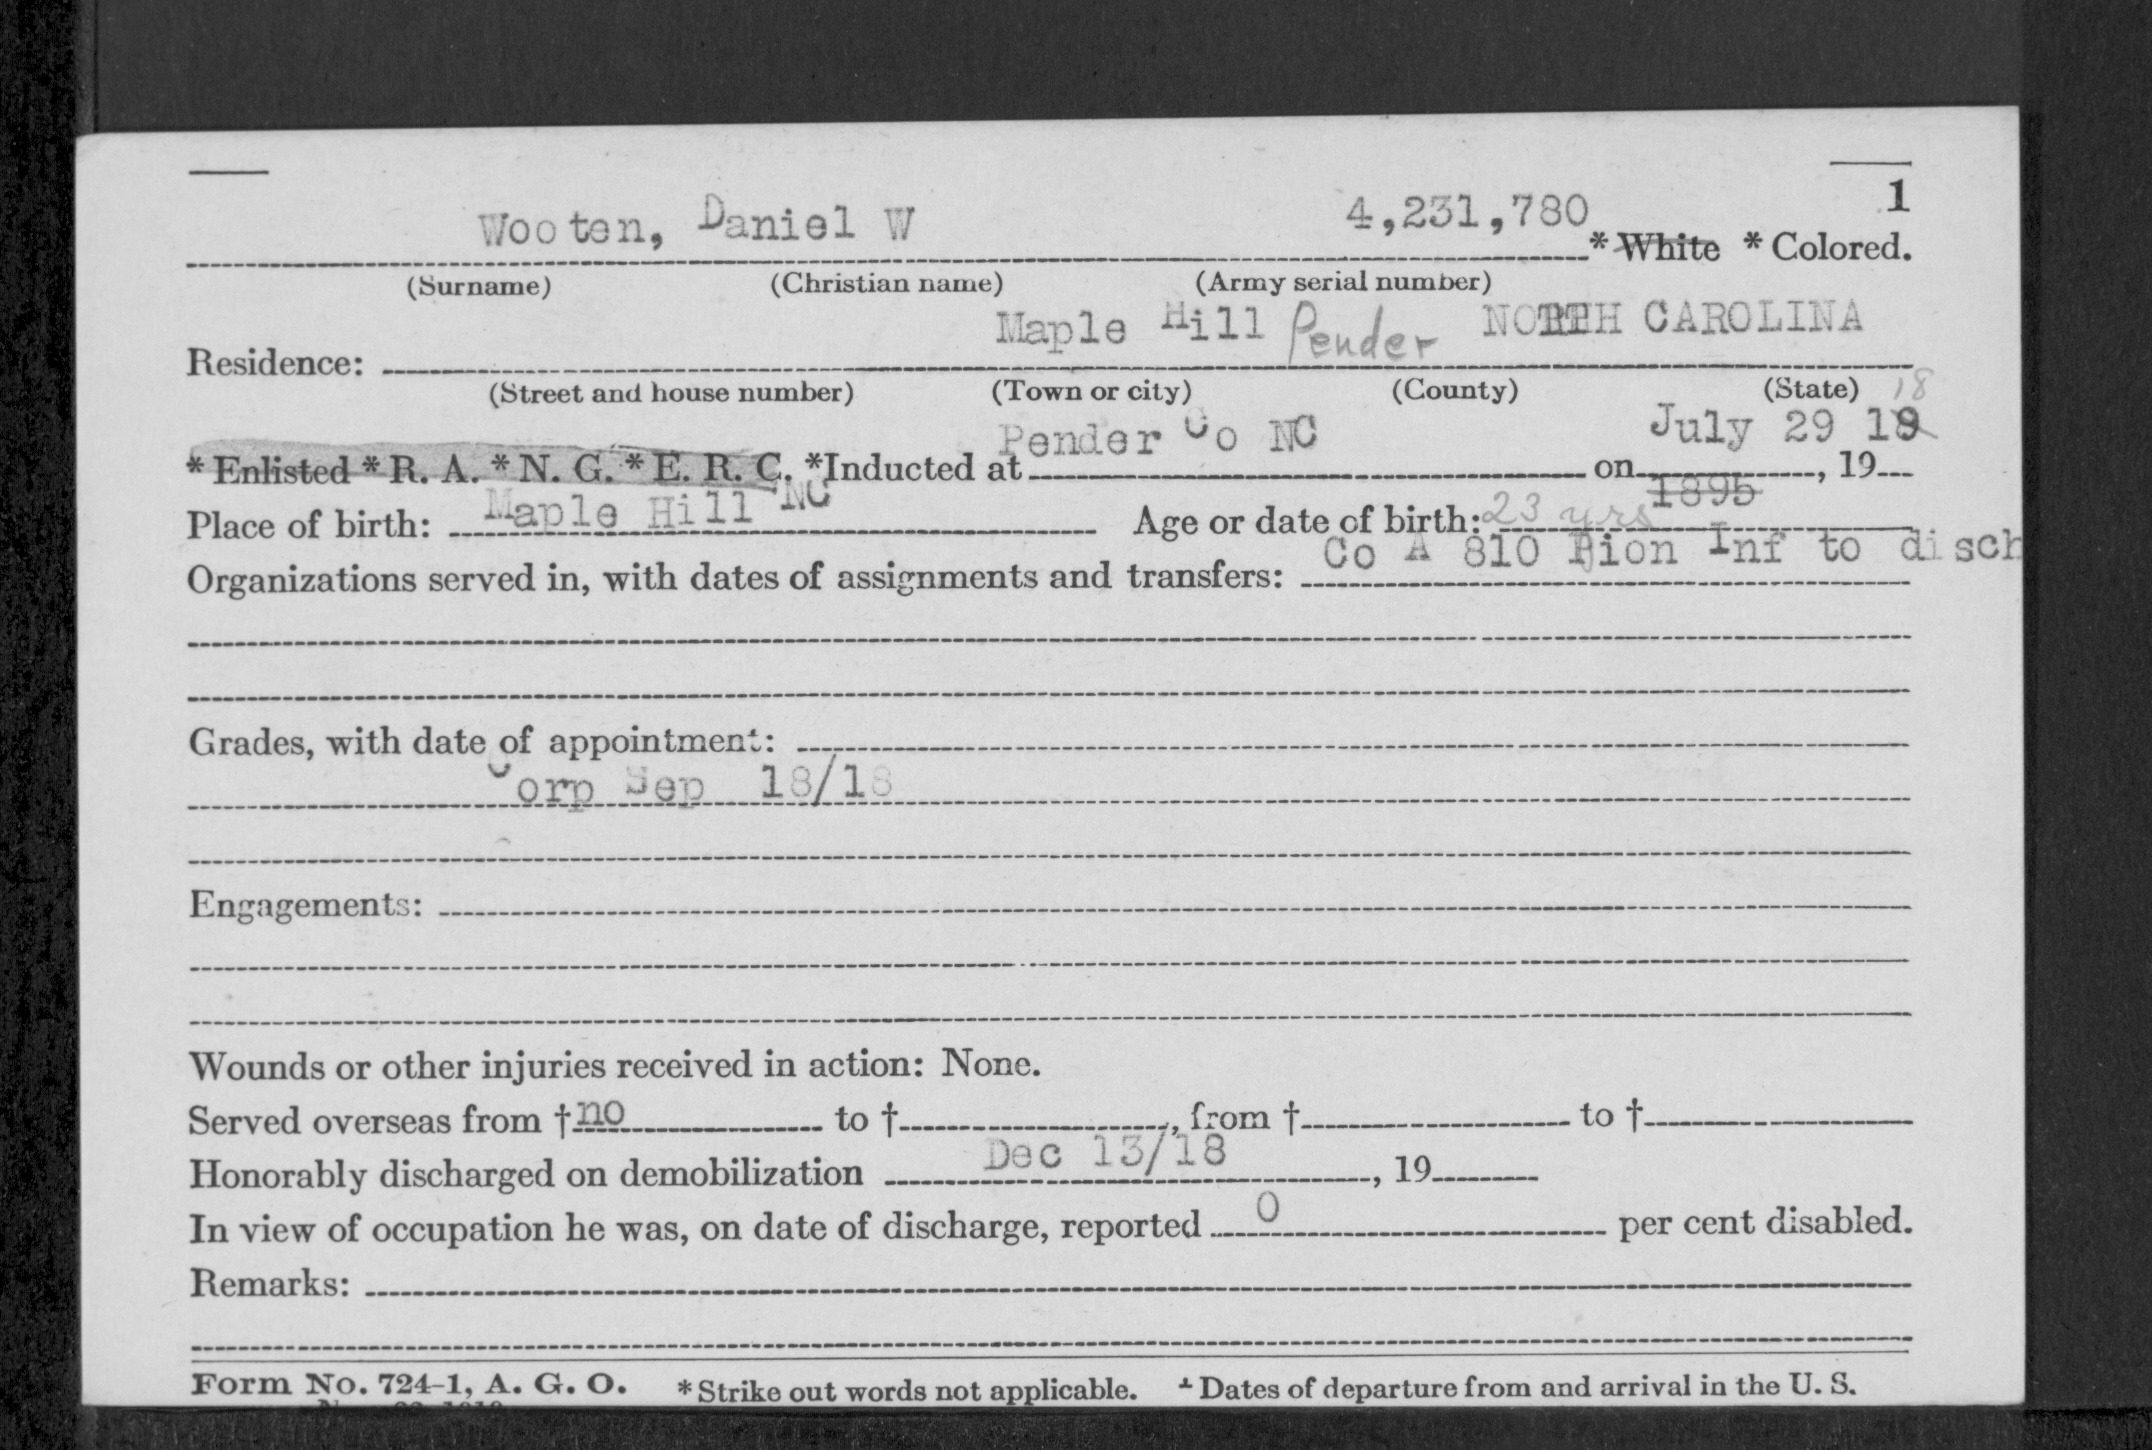 1
Wooten, Daniel W 4,231,780 * White * Colored.
(Surname) (Christian name) (Army serial number)
Residence: Maple Hill Pender NORTH CAROLINA
(Street and house number) (Town or city) (County) (State)
18
* Enlisted * R. A. * N. G. * E. R. C. *Inducted at Pender Co NC on July 29 19, 19
Place of birth: Maple Hill NC Age or date of birth: 23 yrs 1895
Organizations served in, with dates of assignments and transfers: Co A 810 Pion Inf to disch
Grades, with date of appointment:
Corp Sep 18/18
Engagements:
Wounds or other injuries received in action: None.
Served overseas from † no to †, from † to †
Honorably discharged on demobilization Dec 13/18, 19
In view of occupation he was, on date of discharge, reported 0 per cent disabled.
Remarks:
Form No. 724-1, A. G. O. * Strike out words not applicable. † Dates of departure from and arrival in the U. S.